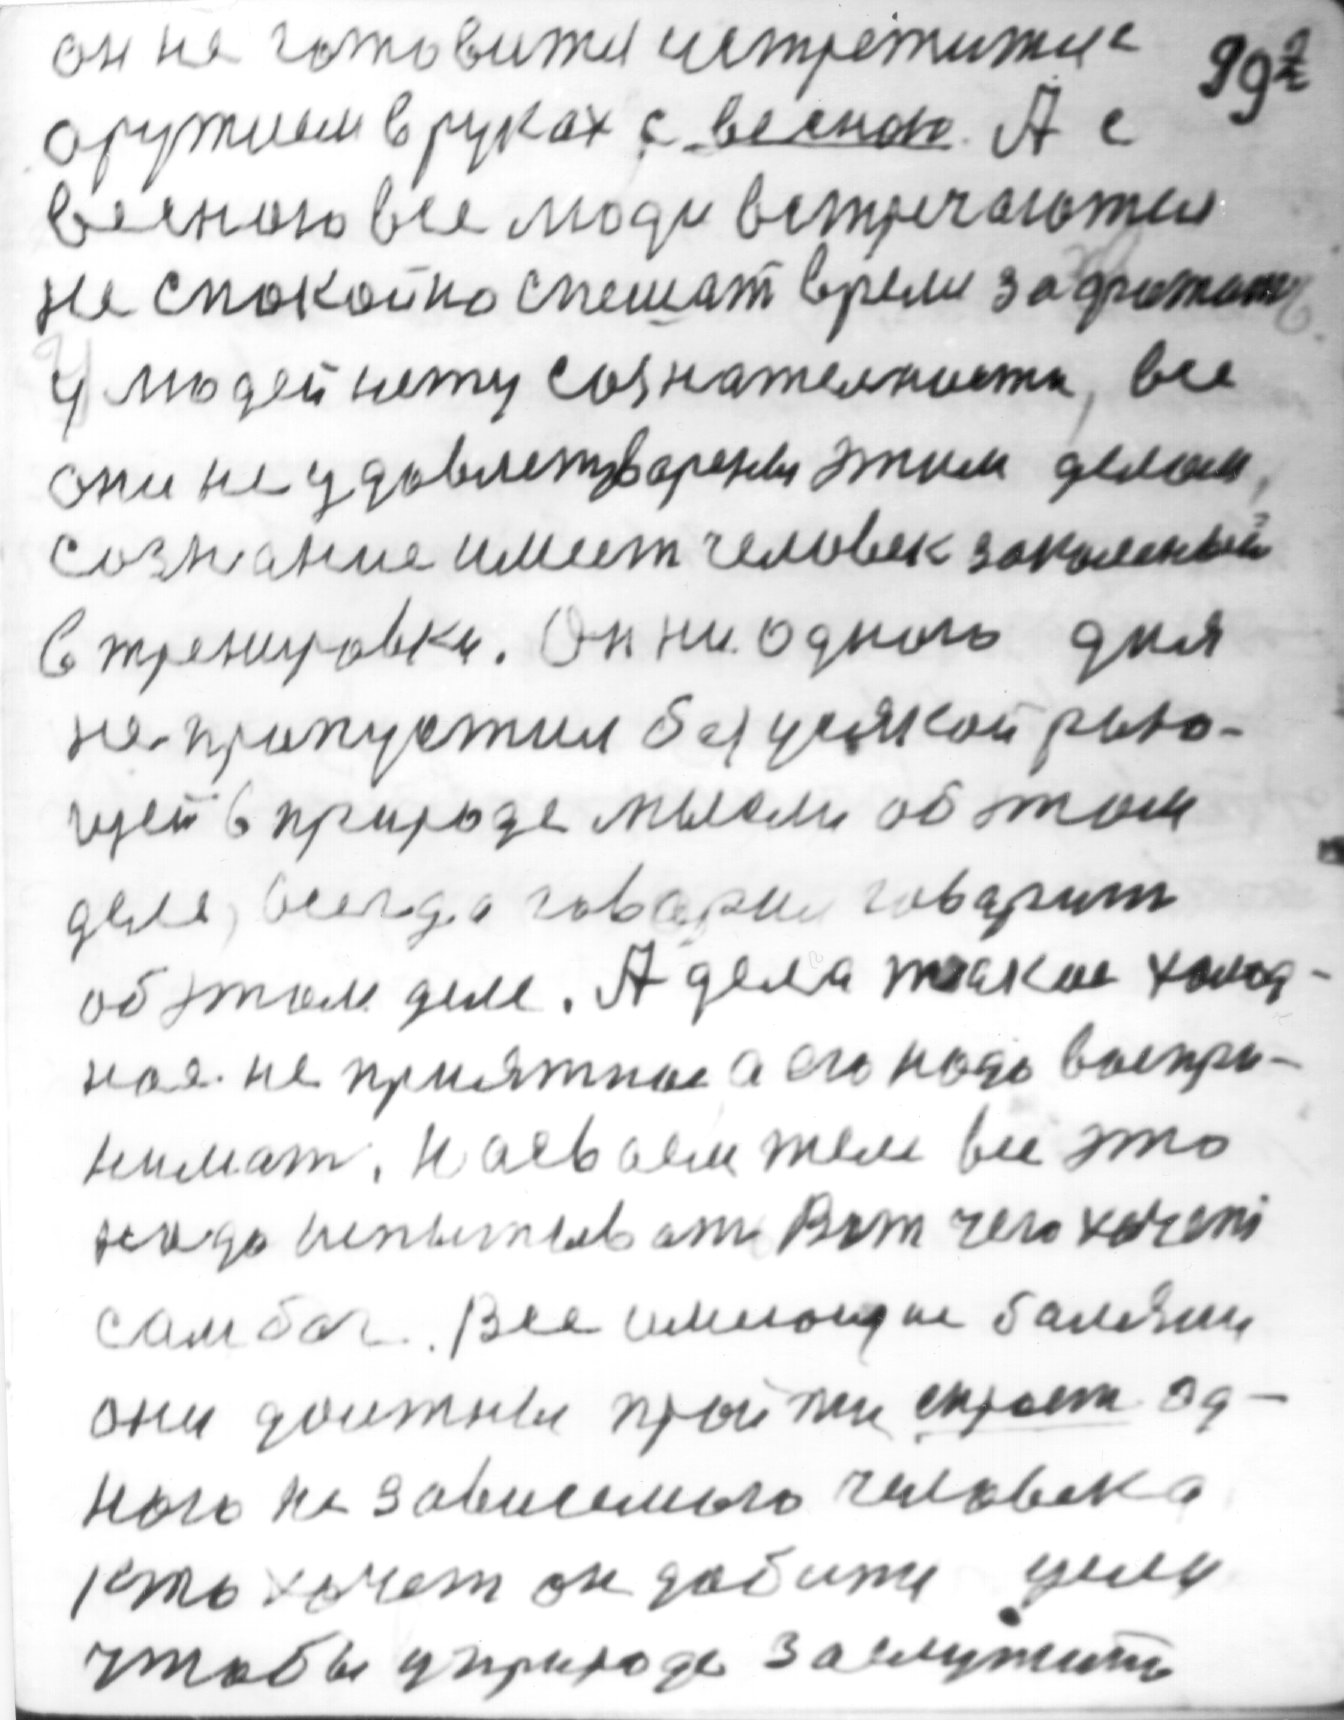 он не готовится истретится с 99
оружием в руках с весною. А с
весною все люди встречаются
не спокойно спешат время задержать
У людей нету сознателности, все
они не удовлетворены этим делом,
сознание имеет человек закаленый
в тренировки. Он ни одного дня
не пропустил без усякой рыю-
щей в природе мысли об этом
деле, всегда говорил говарит
об этом деле. А дела такое холод-
ное не приятное а его надо воспри-
нимат. На своем теле все это
надо испытыват Вот чего хочет
сам бог. Все имеющие балезни
они должны пройти скрость од-
ного не зависемого человека
Кто хочет он добитя цели
чтобы у природе заслужить